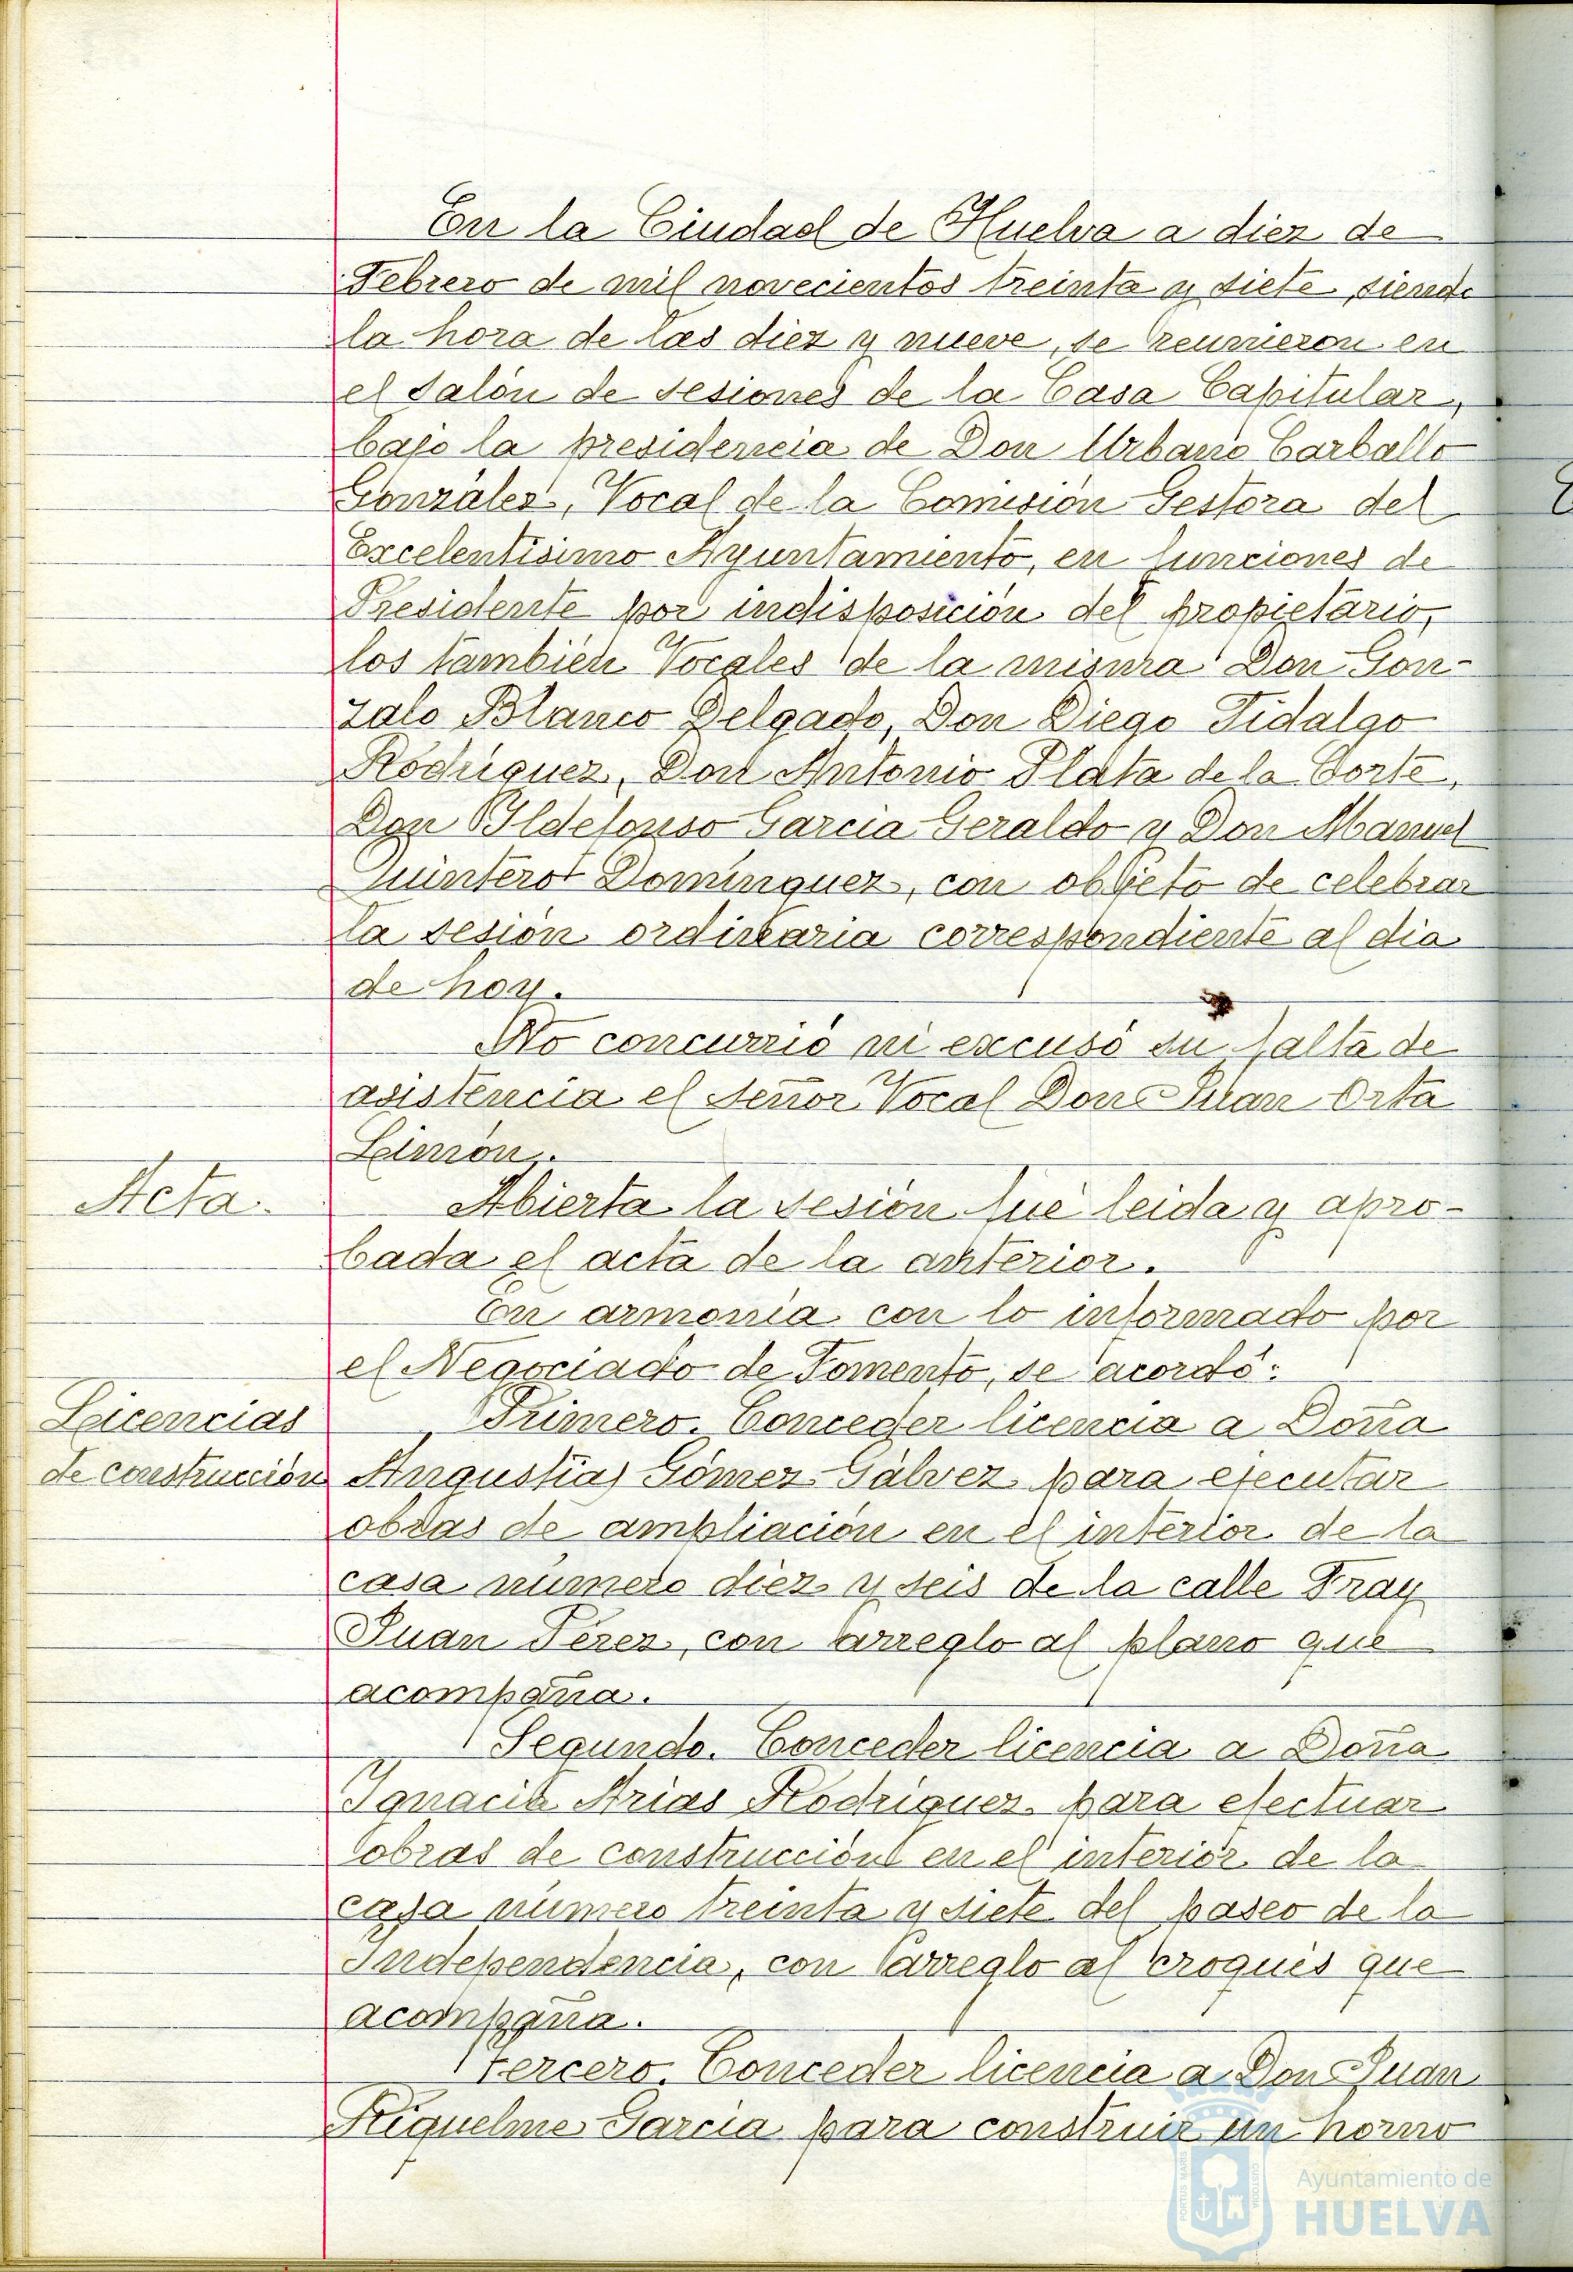 En la Ciudad de Huelva a diez de
Febrero de mil novecientos treinta y siete, siendo
la hora de las diez y nueve, se reunieron en
el salón de sesiones de la Casa Capitular,
bajo la presidencia de Don Urbano Carballo
González, Vocal de la Comisión Gestora del
Excelentísimo Ayuntamiento, en funciones de
Presidente por indisposición del propietario,
los también Vocales de la misma Don Gon-
zalo Blanco Delgado, Don Diego Fidalgo
Rodríguez, Don Antonio Plata de la Corte,
Don Ildefonso García Geraldo y Don Manuel
Quintero Domínguez, con objeto de celebrar
la sesión ordinaria correspondiente al dia
de hoy.
No concurrió ni excusó su falta de
asistencia el señor Vocal Don Juan Orta
Limón.
Acta.
Abierta la sesión fué leida y apro-
bada el acta de la anterior.
En armonía con lo informado por
el Negociado de Fomento, se acordó:
Licencias
de construcción
Primero. Conceder licencia a Doña
Angustias Gómez Gálvez para ejecutar
obras de ampliación en el interior de la
casa número diez y seis de la calle Fray
Juan Pérez, con arreglo al plano que
acompaña.
Segundo. Conceder licencia a Doña
Ignacia Arias Rodríguez para efectuar
obras de construcción en el interior de la
casa número treinta y siete del paseo de la
Independencia, con arreglo al croquis que
acompaña.
Tercero. Conceder licencia a Don Juan
Riquelme García para construir un horno
PORTUS MARIS
CUSTODIA
Ayuntamiento de
HUELVA